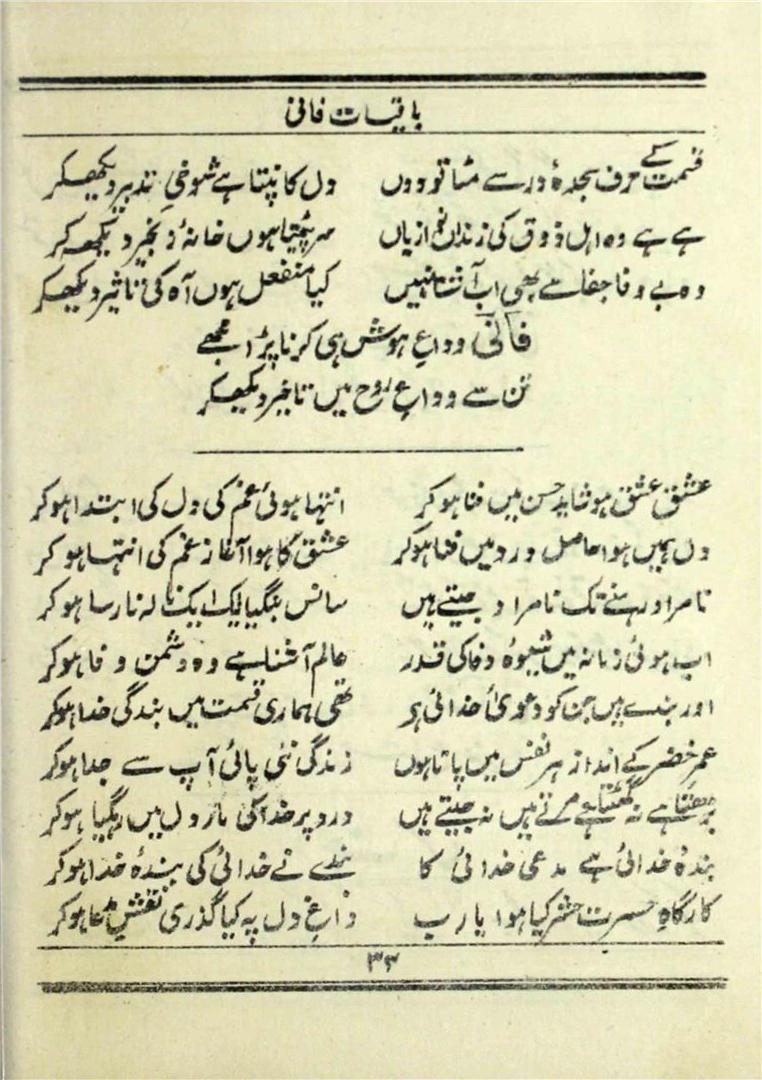 باقیات فانی
قسمت کے حرف سجدۂ در سے مٹا تو دوں دل کانپتا ہے شوخیِ تدبیر دیکھ کر
ہے ہے وہ اہل ذوق کی زنداں نوازیاں سر پیٹتا ہوں خانۂ زنجیر دیکھ کر
وہ بے وفا جفا سے بھی اب آشنا نہیں کیا منفعل ہوں آہ کی تاثیر دیکھ کر
فانیؔ وداعِ ہوش ہی کرنا پڑا مجھے
تن سے وداعِ روح میں تاخیر دیکھ کر
عشق عشق ہو شاید حسن میں فنا ہو کر انتہا ہوئی غم کی دل کی ابتدا ہو کر
دل ہمیں ہوا حاصل درد میں فنا ہو کر عشق کا ہوا آغاز غم کی انتہا ہو کر
نامراد رہنے تک نامراد جیتے ہیں سانس بنگیا ایک ایک نالہ نارسا ہو کر
اب ہوئی زمانہ میں شیوۂ وفا کی قدر عالم آشنا ہے وہ دشمن وفا ہو کر
اور بندے ہیں جن کو دعویٰٔ خدائی ہے تھی ہماری قسمت میں بندگی خدا ہو کر
عمر خضر کے انداز ہر نفس میں پاتا ہوں زندگی نئی پائی آپ سے جدا ہو کر
بڑھتا ہے نہ گھٹتا ہے مرتے ہیں نہ جیتے ہیں درد پر خدا کی مار دل میں رہگیا ہو کر
بندۂ خدائی ہے مدعی خدائی کا بندے نے خدائی کی بندۂ خدا ہو کر
کارگاہِ حسرت حشر کیا ہوا یا رب داغِ دل پہ کیا گذری نقشِ مدعا ہو کر
۳۳